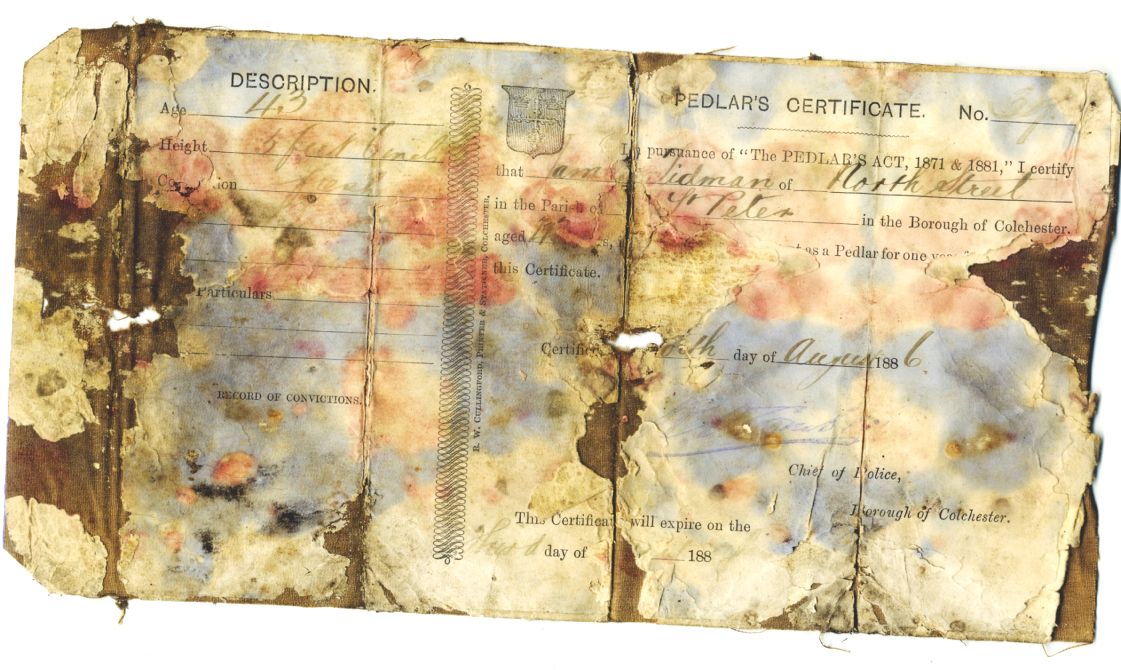 DESCRIPTION.
Age 43
Height 5 feet
Particulars
RECORD OF CONVICTIONS.
R. W. CULLINGFORD, PRINTER & STATIONER, COLCHESTER.
PEDLAR'S CERTIFICATE. No.
In pursuance of "The PEDLAR'S ACT, 1871 & 1881," I certify
that Sidman of North Street
in the Parish of St Peter in the Borough of Colchester.
aged 4
as a Pedlar for one
this Certificate.
Certifie
day of August 1886
Chief of Police,
Borough of Colchester.
This Certificat will expire on the
day of 188